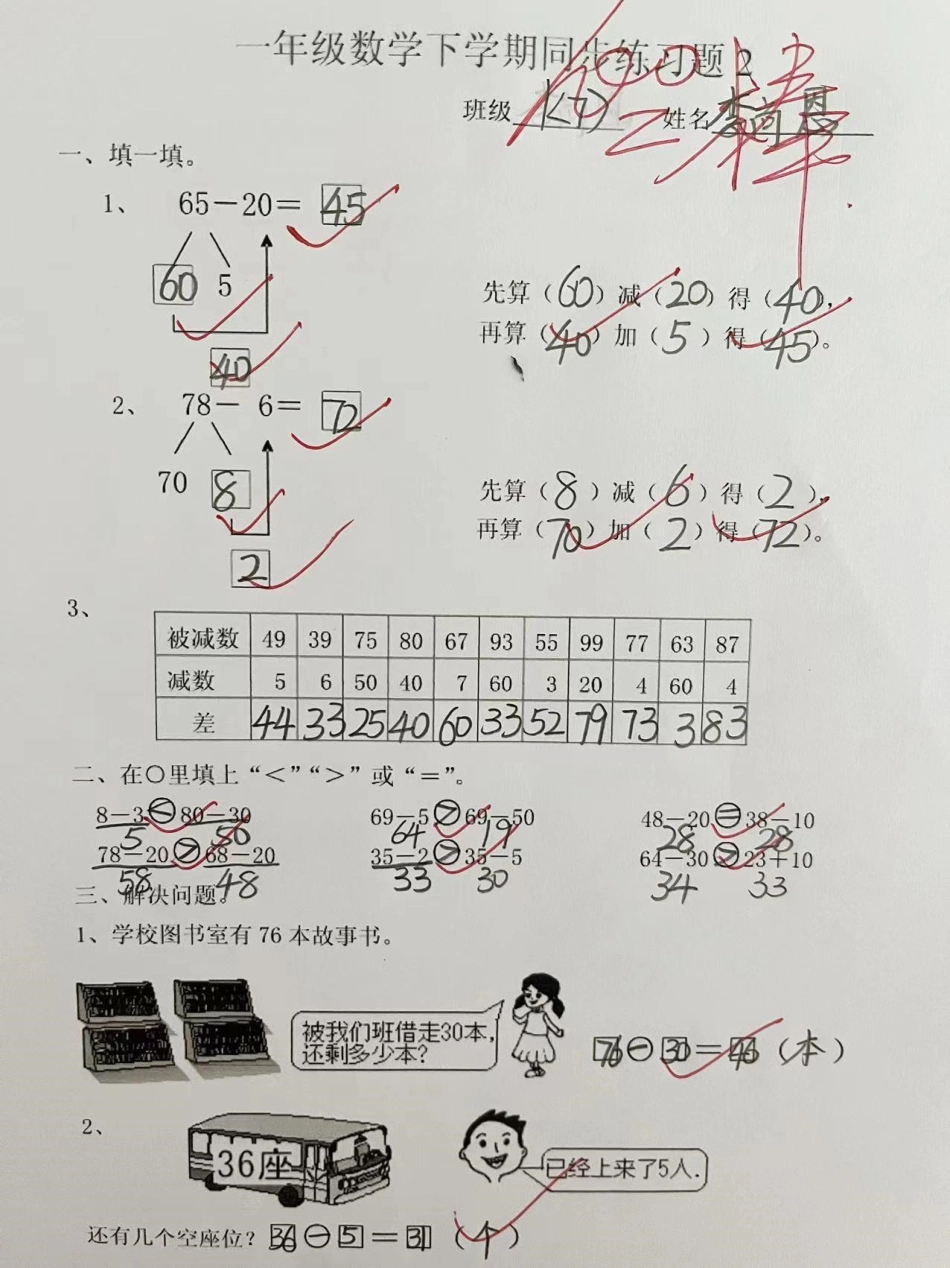 一年级数学下学期同步练习题2
100
班级 1(7) 姓名 李高恩
一、填一填。
1、 65－20＝ 45
60 5
先算（60）减（20）得（40），
再算（40）加（5）得（45）。
40
2、 78－ 6＝ 72
70 8
先算（8）减（6）得（2），
再算（70）加（2）得（72）。
2
3、
被减数 49 39 75 80 67 93 55 99 77 63 87
减数 5 6 50 40 7 60 3 20 4 60 4
差 44 33 25 40 60 33 52 79 73 3 83
二、在○里填上“＜”“＞”或“＝”。
8－3＜80－30 69－5＞69－50 48－20＝38－10
5 50 64 19 28 28
78－20＞68－20 35－2＞35－5 64－30＞23＋10
58 48 33 30 34 33
三、解决问题。
1、学校图书室有 76 本故事书。
被我们班借走30本，
还剩多少本？
76－30＝46（本）
2、
36座
已经上来了5人．
还有几个空座位？ 36－5＝31（个）